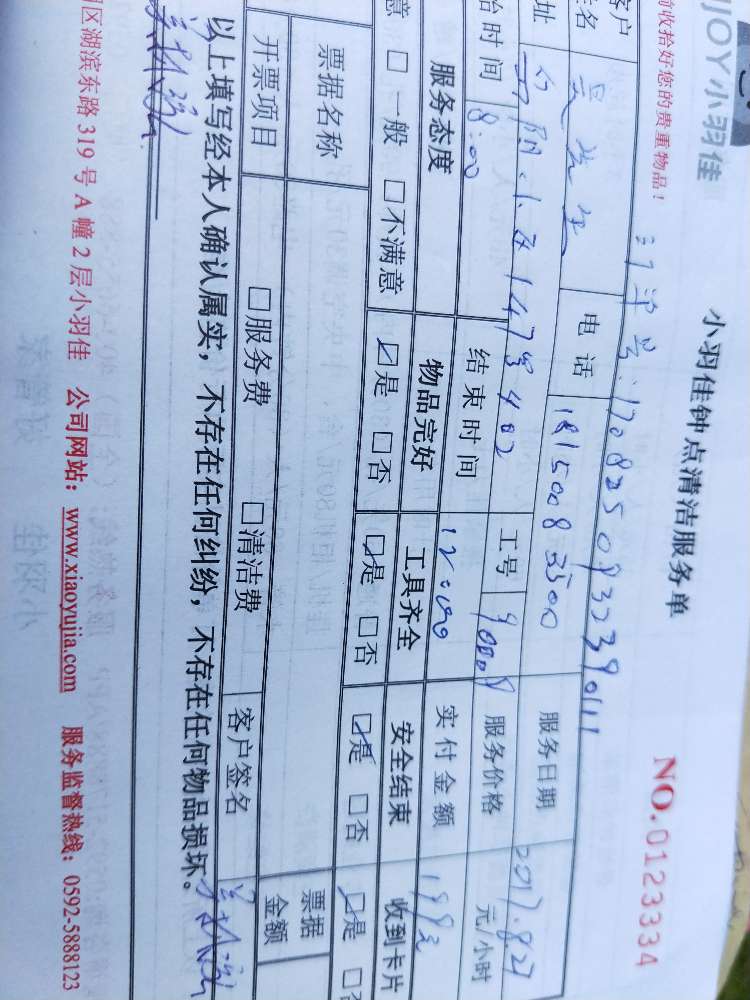 JOY小羽佳
小羽佳钟点清洁服务单
NO.0123334
收拾好您的贵重物品！
订单号：170825093239011
客户
姓名
电话 18150083500
服务日期 2017.8.27
址 402
工号
服务价格 元/小时
始时间 8:00
结束时间 12:00
实付金额 199元
服务态度 物品完好 工具齐全 安全结束 收到卡片
意 □一般 □不满意 ☑是 □否 ☑是 □否 ☑是 □否 ☑是 □否
票据名称
票据
金额
开票项目 □服务费 □清洁费
客户签名
以上填写经本人确认属实，不存在任何纠纷，不存在任何物品损坏。
区湖滨东路 319 号 A 幢 2 层小羽佳 公司网站：www.xiaoyujia.com 服务监督热线：0592-5888123